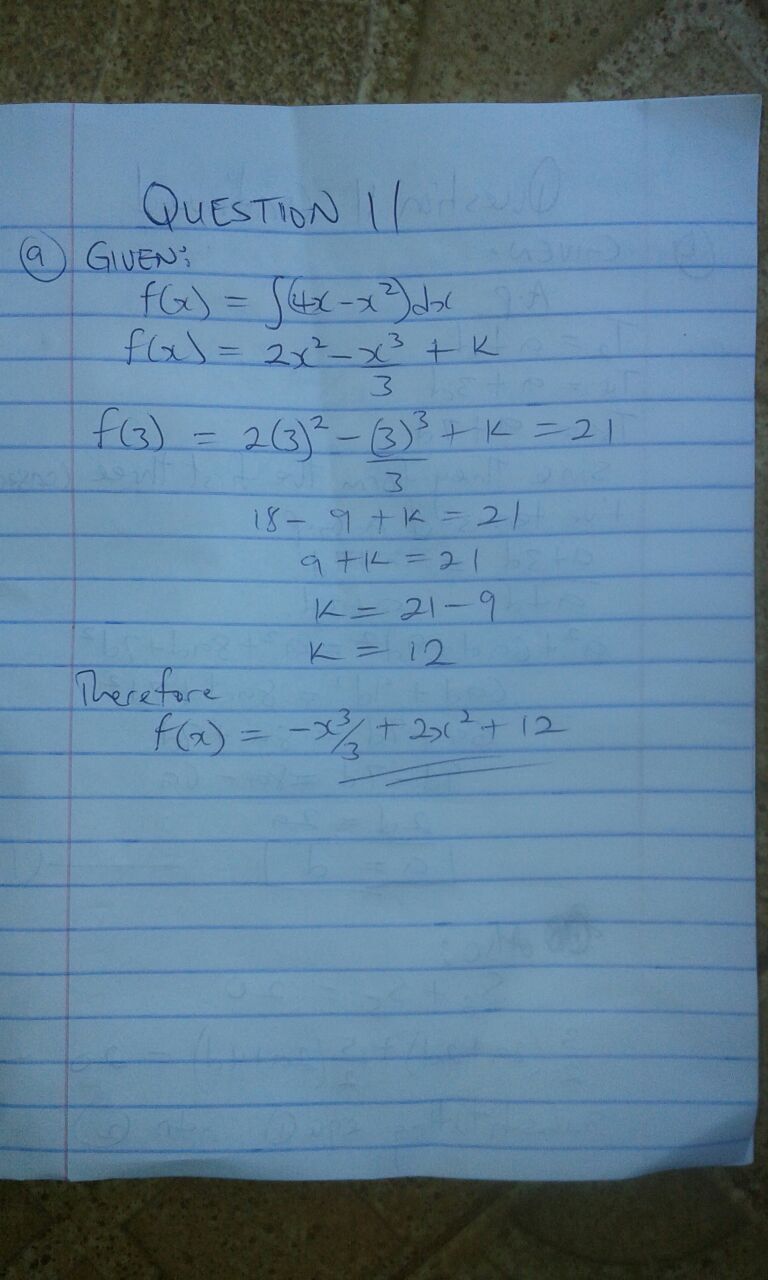 QUESTION 11
(a) GIVEN:
f(x) = ∫(4x - x²)dx
f(x) = 2x² - x³/3 + K
f(3) = 2(3)² - (3)³/3 + K = 21
18 - 9 + K = 21
9 + K = 21
K = 21 - 9
K = 12
Therefore
f(x) = -x³/3 + 2x² + 12